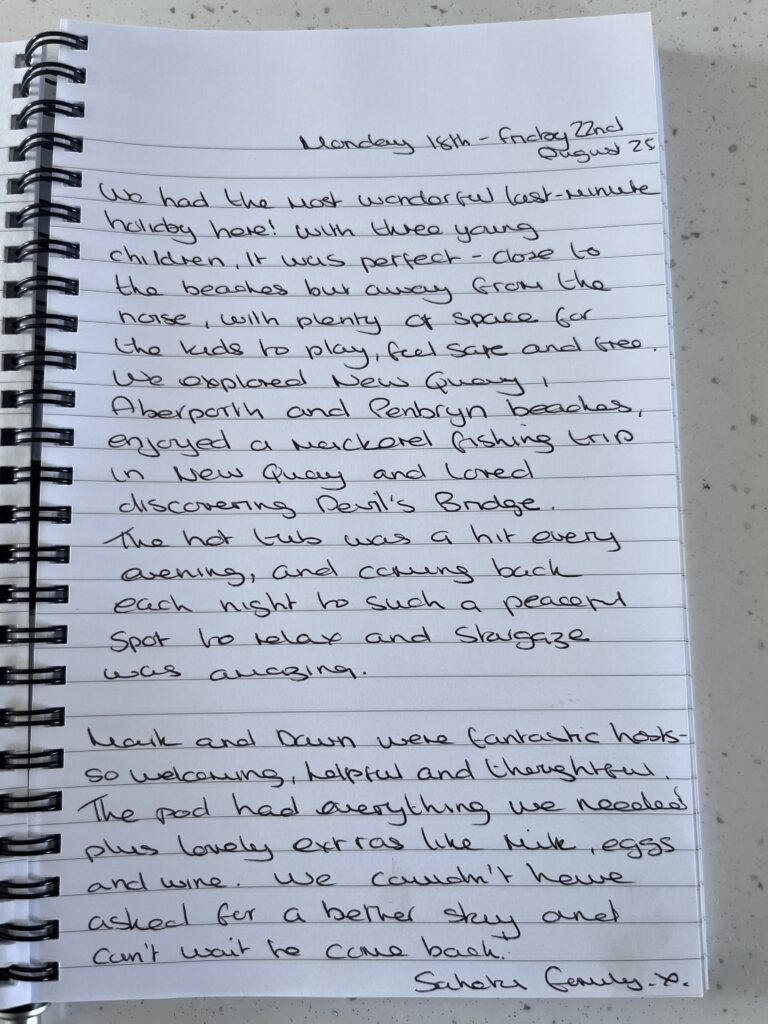 Monday 18th - Friday 22nd
August 25
We had the most wonderful last-minute
holiday here! With three young
children, it was perfect - close to
the beaches but away from the
noise, with plenty of space for
the kids to play, feel safe and free.
We explored New Quay,
Aberporth and Penbryn beaches,
enjoyed a mackerel fishing trip
in New Quay and loved
discovering Devil's Bridge.
The hot tub was a hit every
evening, and coming back
each night to such a peaceful
spot to relax and stargaze
was amazing.
Mark and Dawn were fantastic hosts -
so welcoming, helpful and thoughtful.
The pod had everything we needed
plus lovely extras like milk, eggs
and wine. We couldn't have
asked for a better stay and
can't wait to come back.
family x.